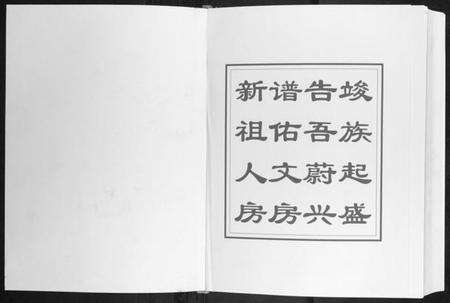 新谱告竣
祖佑吾族
人文蔚起
房房兴盛